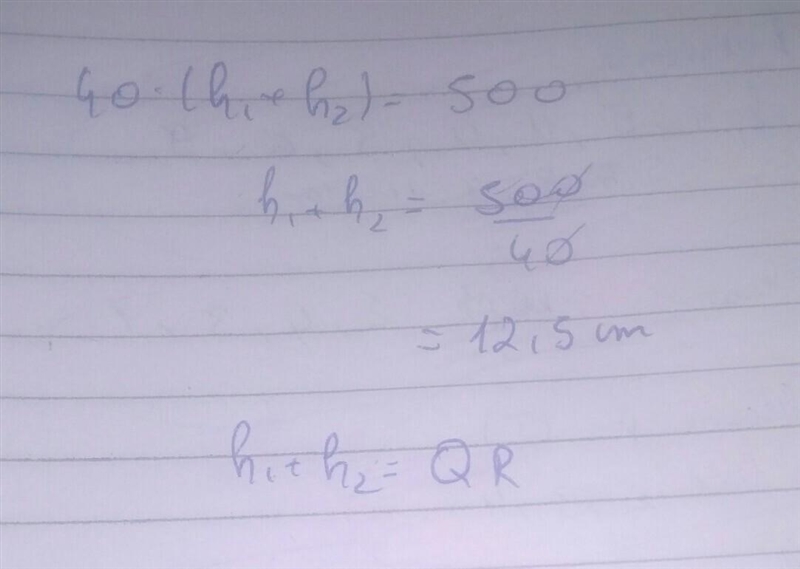 40·(h₁+h₂)= 500
h₁+h₂= 500/40
= 12,5 cm
h₁+h₂= QR